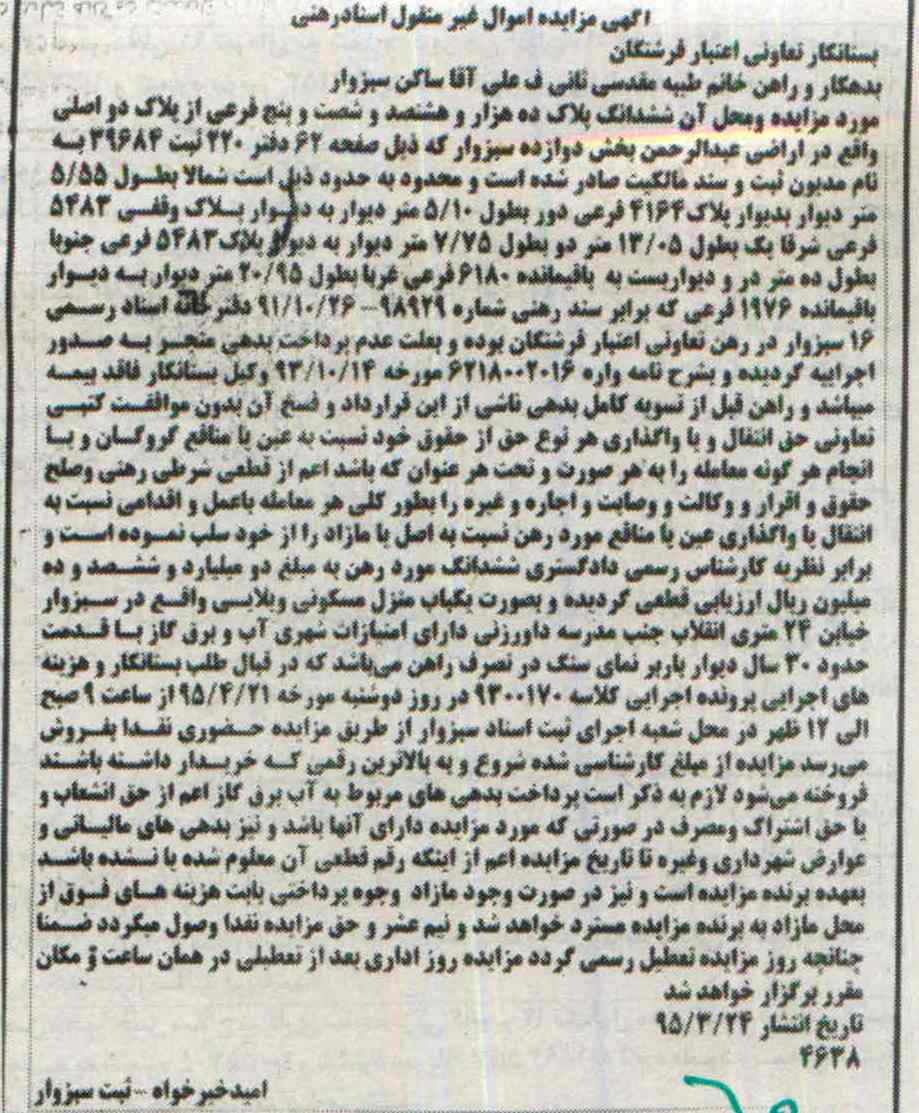 اگهی مزایده اموال غیر منقول اسنادرهنی
بستانکار تعاونی اعتبار فرشتگان
بدهکار و راهن خانم طیبه مقدسی ثانی ف علی آقا ساکن سبزوار
مورد مزایده ومحل آن ششدانگ پلاک ده هزار و هشتصد و شصت و پنج فرعی از پلاک دو اصلی
واقع در اراضی عبدالرحمن بخش دوازده سبزوار که ذیل صفحه ۶۲ دفتر ۲۲۰ ثبت ۳۹۶۸۴ به
نام مدیون ثبت و سند مالکیت صادر شده است و محدود به حدود ذیل است شمالا بطول ۵/۵۵
متر دیوار بدیوار پلاک ۴۱۶۴ فرعی دور بطول ۵/۱۰ متر دیوار به دیوار پلاک وقفی ۵۴۸۳
فرعی شرقا یک بطول ۱۳/۰۵ متر دو بطول ۷/۷۵ متر دیوار به دیوار پلاک ۵۴۸۳ فرعی جنوبا
بطول ده متر در و دیواریست به باقیمانده ۶۱۸۰ فرعی غربا بطول ۲۰/۹۵ متر دیوار به دیوار
باقیمانده ۱۹۷۶ فرعی که برابر سند رهنی شماره ۹۸۹۲۹– ۹۱/۱۰/۲۶ دفترخانه اسناد رسمی
۱۶ سبزوار در رهن تعاونی اعتبار فرشتگان بوده و بعلت عدم پرداخت بدهی منجر به صدور
اجراییه گردیده و بشرح نامه وارده ۶۲۱۸۰۰۲۰۱۶ مورخه ۹۳/۱۰/۱۴ وکیل بستانکار فاقد بیمه
میباشد و راهن قبل از تسویه کامل بدهی ناشی از این قرارداد و فسخ آن بدون موافقت کتبی
تعاونی حق انتقال و یا واگذاری هر نوع حق از حقوق خود نسبت به عین یا منافع گروگان و یا
انجام هر گونه معامله را به هر صورت و تحت هر عنوان که باشد اعم از قطعی شرطی رهنی وصلح
حقوق و اقرار و وکالت و وصایت و اجاره و غیره را بطور کلی هر معامله باعمل و اقدامی نسبت به
انتقال یا واگذاری عین یا منافع مورد رهن نسبت به اصل یا مازاد را از خود سلب نموده است و
برابر نظریه کارشناس رسمی دادگستری ششدانگ مورد رهن به مبلغ دو میلیارد و ششصد و ده
میلیون ریال ارزیابی قطعی گردیده و بصورت یکباب منزل مسکونی ویلایی واقع در سبزوار
خیابن ۲۴ متری انقلاب جنب مدرسه داورزنی دارای امتیازات شهری آب و برق گاز با قدمت
حدود ۳۰ سال دیوار باربر نمای سنگ در تصرف راهن می‌باشد که در قبال طلب بستانکار و هزینه
های اجرایی پرونده اجرایی کلاسه ۹۳۰۰۱۷۰ در روز دوشنبه مورخه ۹۵/۴/۲۱ از ساعت ۹ صبح
الی ۱۲ ظهر در محل شعبه اجرای ثبت اسناد سبزوار از طریق مزایده حضوری نقدا بفروش
می‌رسد مزایده از مبلغ کارشناسی شده شروع و به بالاترین رقمی که خریدار داشته باشند
فروخته می‌شود لازم به ذکر است پرداخت بدهی های مربوط به آب برق گاز اعم از حق انشعاب و
یا حق اشتراک ومصرف در صورتی که مورد مزایده دارای آنها باشد و نیز بدهی های مالیاتی و
عوارض شهرداری وغیره تا تاریخ مزایده اعم از اینکه رقم قطعی آن معلوم شده یا نشده باشد
بعهده برنده مزایده است و نیز در صورت وجود مازاد وجوه پرداختی بابت هزینه های فوق از
محل مازاد به برنده مزایده مسترد خواهد شد و نیم عشر و حق مزایده نقدا وصول میگردد ضمنا
چنانچه روز مزایده تعطیل رسمی گردد مزایده روز اداری بعد از تعطیلی در همان ساعت و مکان
مقرر برگزار خواهد شد
تاریخ انتشار ۹۵/۳/۲۴
۴۶۳۸
امیدخیرخواه – ثبت سبزوار